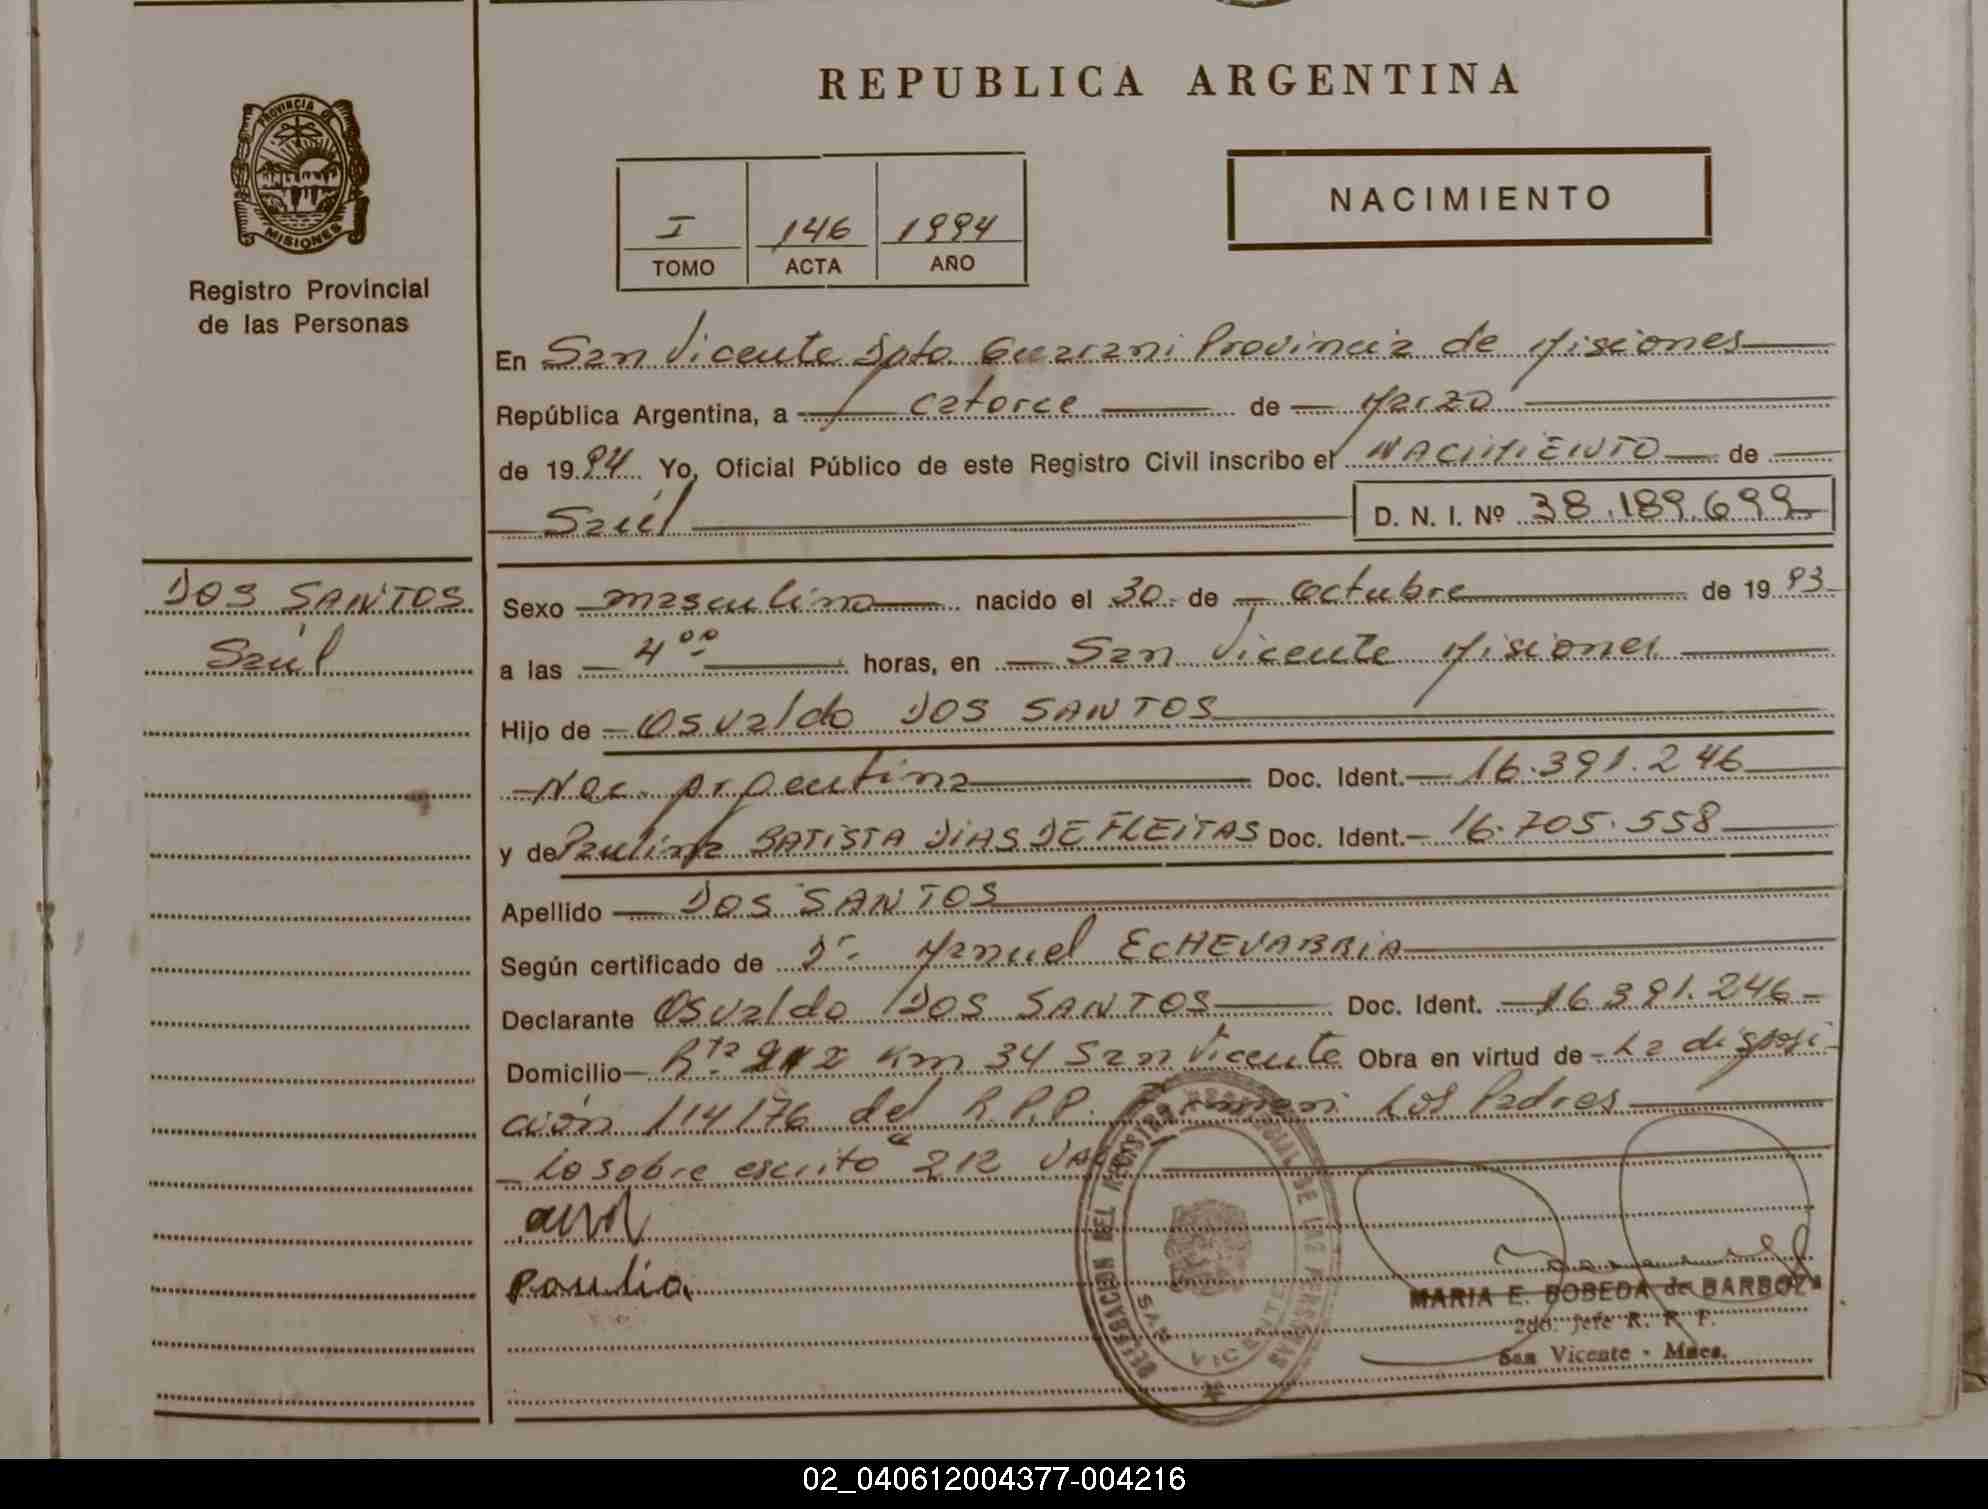 REPUBLICA ARGENTINA
PROVINCIA DE
MISIONES
Registro Provincial
de las Personas
I 146 1994
TOMO ACTA AÑO
NACIMIENTO
En San Vicente Dpto Guarani Provincia de Misiones
República Argentina, a catorce de Marzo
de 1994 Yo, Oficial Público de este Registro Civil inscribo el NACIMIENTO de
Saúl D. N. I. Nº 38.189.699
DOS SANTOS
Saúl
Sexo masculino nacido el 30 de octubre de 1993
a las 4⁰⁰ horas, en San Vicente Misiones
Hijo de Osvaldo DOS SANTOS
Nac. Argentina Doc. Ident. 16.391.246
y de Paulina BATISTA DIAS DE FLEITAS Doc. Ident. 16.705.558
Apellido DOS SANTOS
Según certificado de Dr. Manuel ECHEVARRIA
Declarante Osvaldo DOS SANTOS Doc. Ident. 16.391.246
Domicilio Rta 212 Km 34 San Vicente Obra en virtud de La disposi
ción 114/76 del R.P.P. Firman Los Padres
Lo sobre escrito "212 Vale
Paulia
DELEGACION DEL REGISTRO PROVINCIAL DE LAS PERSONAS
SAN VICENTE
MARIA E. BOBEDA de BARBOZA
2do. Jefe R. P. P.
San Vicente - Mnes.
02_040612004377-004216